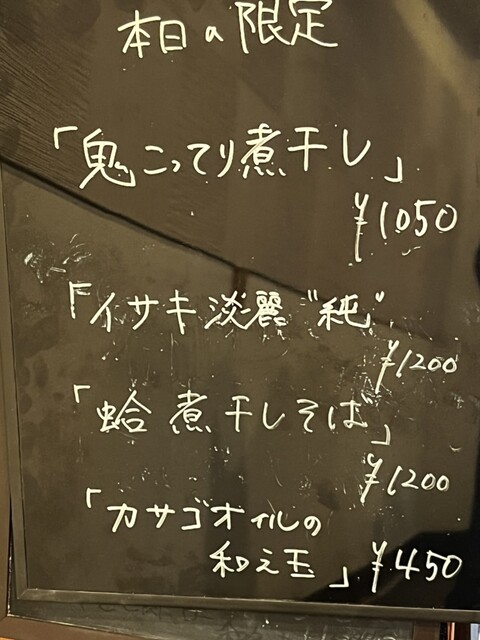 本日の限定
「鬼こってり煮干し」
¥1050
「イサキ淡麗"純"
¥1200
「蛤煮干しそば」
¥1200
「カサゴオイルの
和え玉」¥450